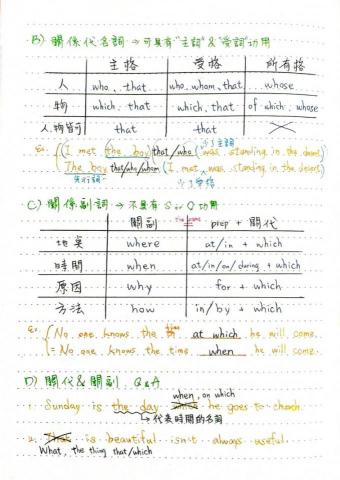 B) 關係代名詞 → 可具有"主詞"&"受詞"功用
主格 受格 所有格
人 who、that who、whom、that whose
物 which、that which、that of which、whose
人.物皆可 that that ✕
Ex. I met the boy that/who (was standing in the desert)
少了主詞
The boy that/who/whom (I met) was standing in the desert)
先行詞
少了受格
C) 關係副詞 → 不具有 S or O 功用
關副 the same = prep + 關代
地點 where at/in + which
時間 when at/in/on/during + which
原因 why for + which
方法 how in/by + which
Ex. No one knows the time at which he will come.
= No one knows the time when he will come.
D) 關代&關副 Q&A
when, on which
1. Sunday is the day which he goes to church.
→代表時間的名詞
2. That is beautiful isn't always useful.
What, the thing that/which